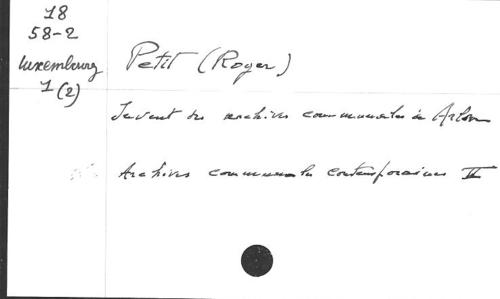 18
58-2
Luxembourg
1 (2)
Petit (Roger)
Invent des archives communales de Arlon
Archives communales contemporaines II